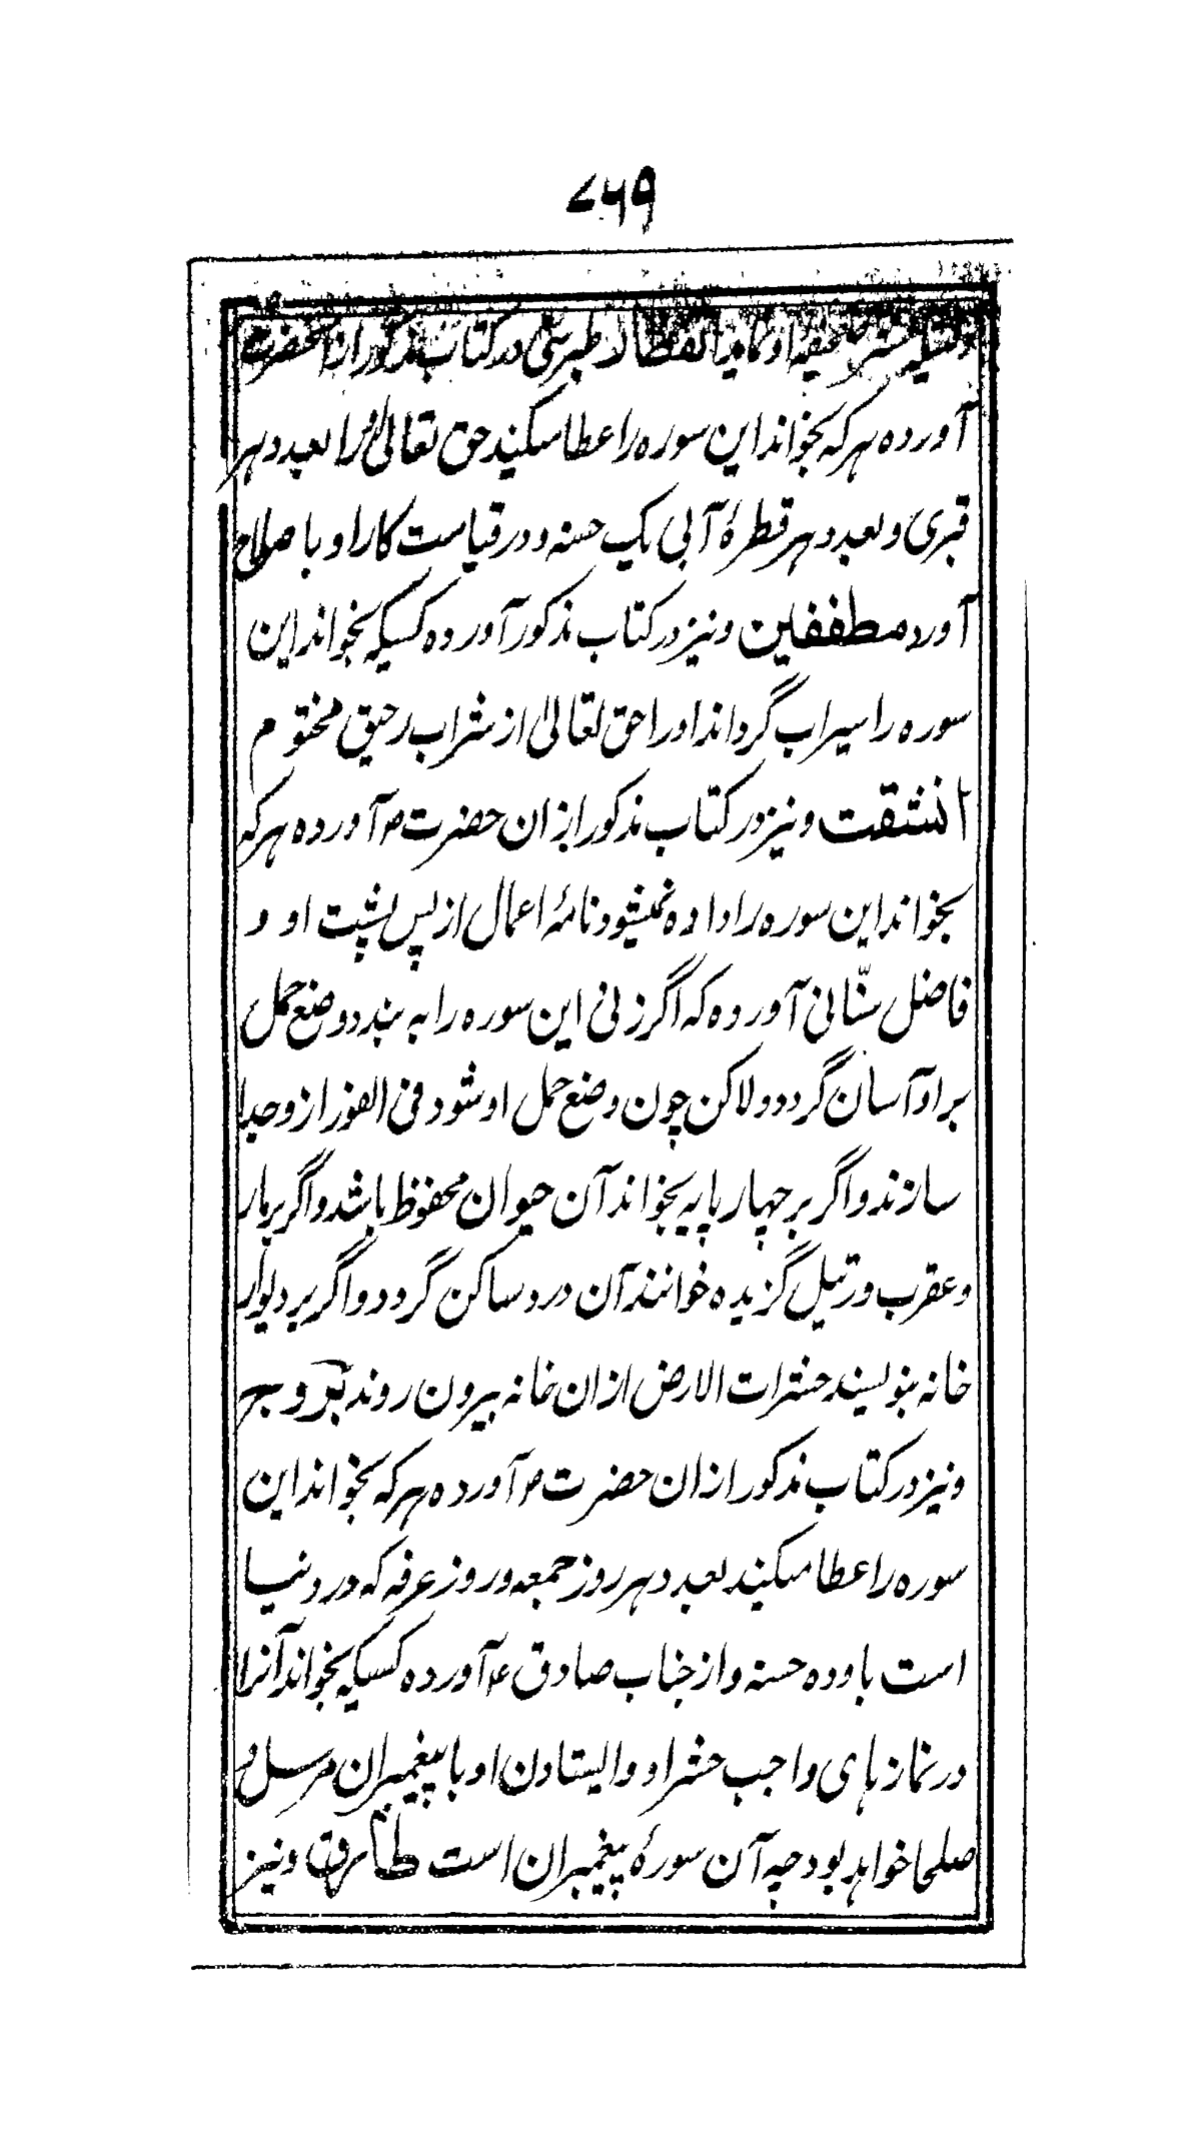 ۷۶۹
صحیفه او نماید انفطار طبرسی در کتاب مذکور از انحضرت
آورده هرکه بخواند این سوره را عطا میکند حق تعالی او را بعدد هر
قبری و بعدد هر قطرهٔ آبی یک حسنه و در قیامت کار او باصلاح
آورد مطففین و نیز در کتاب مذکور آورده کسیکه بخواند این
سوره را سیراب گرداند او را حق تعالیٰ از شراب رحیق مختوم
انشقت و نیز در کتاب مذکور ازان حضرت ص آورده هرکه
بخواند این سوره را داده نمیشود نامهٔ اعمال از پس پشت او و
فاضل سنّانی آورده که اگر زنی این سوره را به بندد وضع حمل
بر او آسان گردد و لاکن چون وضع حمل او شود فی الفور از و جدا
سازند و اگر بر چهار پایه بخواند آن حیوان محفوظ باشد و اگر بر مار
و عقرب و رتیل گزیده خوانند آن درد ساکن گردد و اگر بر دیوار
خانه بنویسند حشرات الارض ازان خانه بیرون روند بروج
و نیز در کتاب مذکور ازان حضرت ص آورده هرکه بخواند این
سوره را عطا میکند بعدد هر روز جمعه و روز عرفه که در دنیا
است باو ده حسنه و از جناب صادق ع آورده کسیکه بخواند آنرا
در نماز های واجب حشر او و ایستادن او با پیغمبران مرسل و
صلحا خواهد بود چه آن سورهٔ پیغمبران است طارق و نیز